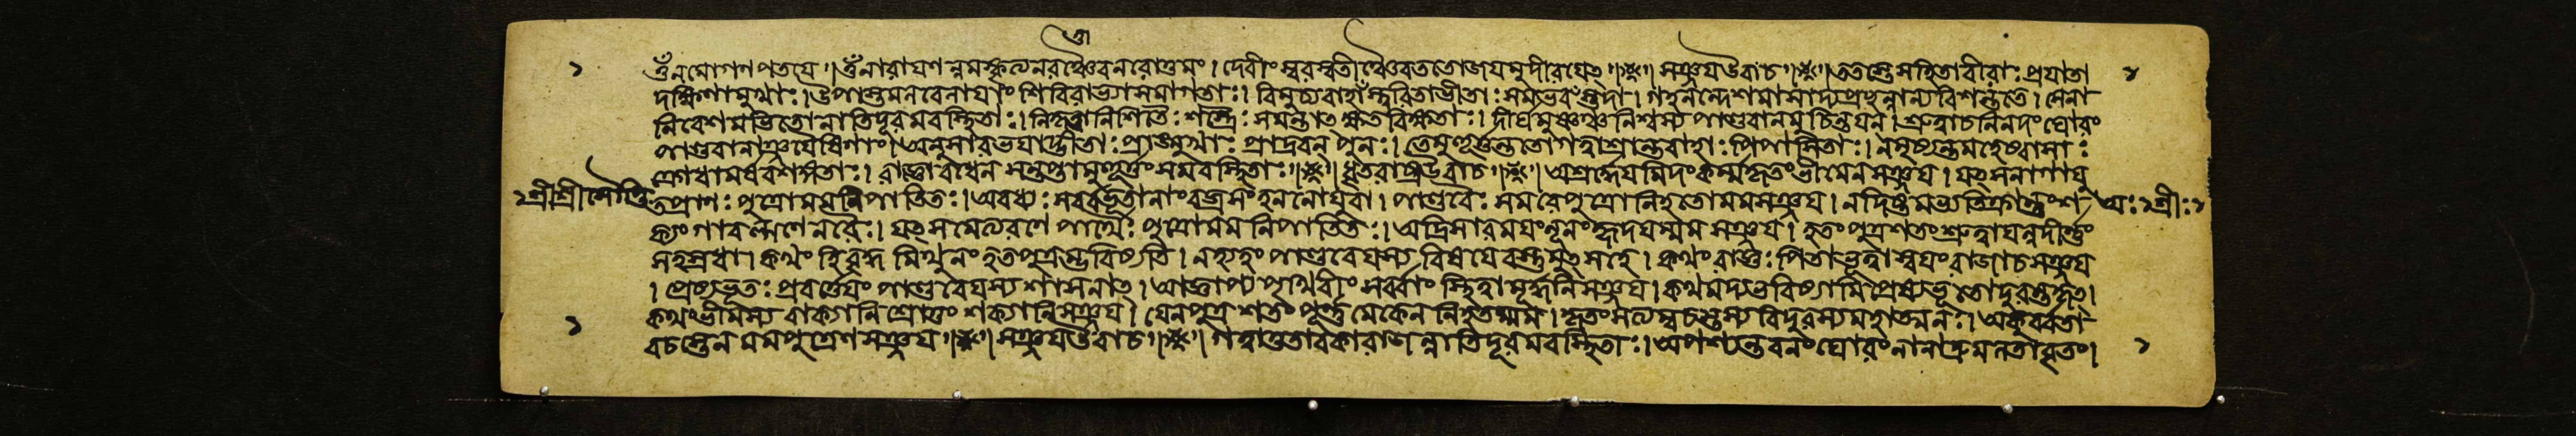 ওঁ নমো গণপতয়ে ॥ ওঁ নারায়ণং নমস্কৃত্য নরঞ্চৈব নরোত্তমং । দেবীং সরস্বতীঞ্চৈব ততো জয়মুদীরয়েৎ ॥ সঞ্জয় উবাচ ॥ ততস্তে সহিতা বীরাঃ প্রযাতা
দক্ষিণামুখাঃ । উপাস্তমনবেলায়াং শিবিরাভ্যাসমাগতাঃ । বিমুচ্য বাহাংস্ত্বরিতা ভীতাঃ সমভবংস্তদা । গহনন্দেশমাসাদ্য প্রচ্ছন্না ন্যবিশন্ত তে । সেনা
নিবেশমভিতো নাতিদূরমবস্থিতাঃ । নিকৃত্তা নিশিতৈঃ শস্ত্রৈঃ সমন্তাৎ ক্ষতবিক্ষতাঃ । দীর্ঘমুষ্ণঞ্চ নিশ্বস্য পাণ্ডবানন্বচিন্তয়ন্ । শ্রুত্বা চ নিনদং ঘোরং
পাণ্ডবানাঞ্জয়ৈষিণাং । অনুসারভয়াদ্ভীতাঃ প্রাঙ্মুখাঃ প্রাদ্রবন্ পুনঃ । তে মুহূর্ত্তন্ততো গত্বা শ্রান্তবাহাঃ পিপাসিতাঃ । নামৃষ্যন্ত মহেষ্বাসাঃ
ক্রোধামর্ষবশঙ্গতাঃ । রাজ্ঞো বধেন সন্তপ্তা মুহূর্ত্তং সমবস্থিতাঃ ॥ ধৃতরাষ্ট্র উবাচ ॥ অশ্রদ্ধেয়মিদং কর্ম্ম কৃতং ভীমেন সঞ্জয় । যৎ স নাগাযু
শ্রীশ্রীসৌপ্তি তপ্রাণঃ পুত্রো মম নিপাতিতঃ । অবধ্যঃ সর্ব্বভূতানাং বজ্রসংহননো যুবা । পাণ্ডবৈঃ সমরে পুত্রো নিহতো মম সঞ্জয় । ন দিষ্টমভ্যতিক্রান্তুং শ অঃ শ্রীঃ
ক্যং গাবল্গণে নরৈঃ । যৎ সমেত্য রণে পার্থৈঃ পুত্রো মম নিপাতিতঃ । অদ্রিসারময়ং নূনং হৃদয়ম্মম সঞ্জয় । হতং পুত্রশতং শ্রুত্বা যন্ন দীর্ণং
সহস্রধা । কথং হি বৃদ্ধমিথুনং হতপুত্রম্ভবিষ্যতি । ন হ্যহং পাণ্ডবেয়স্য বিষয়ে বস্তুমুৎসহে । কথং রাজ্ঞঃ পিতা ভূত্বা স্বয়ং রাজা চ সঞ্জয়
। প্রেষ্যভূতঃ প্রবর্ত্তেয়ং পাণ্ডবেয়স্য শাসনাৎ । আজ্ঞাপ্য পৃথিবীং সর্ব্বাং স্থিত্বা মূর্দ্ধনি সঞ্জয় । কথমদ্য ভবিষ্যামি প্রেষ্যভূতো দুরন্তকৃৎ ।
কথং ভীমস্য বাক্যানি শ্রোতুং শক্ষ্যামি সঞ্জয় । যেন পুত্রশতং পূর্ণমেকেন নিহতম্মম । কৃতং সত্যম্বচস্তস্য বিদুরস্য মহাত্মনঃ । অকুর্ব্বতা
বচস্তেন মম পুত্রেণ সঞ্জয় ॥ সঞ্জয় উবাচ ॥ গত্বা তু তাবকা রাজন্নাতিদূরমবস্থিতাঃ । অপশ্যন্ত বনং ঘোরং নানাদ্রুমলতাবৃতং ।